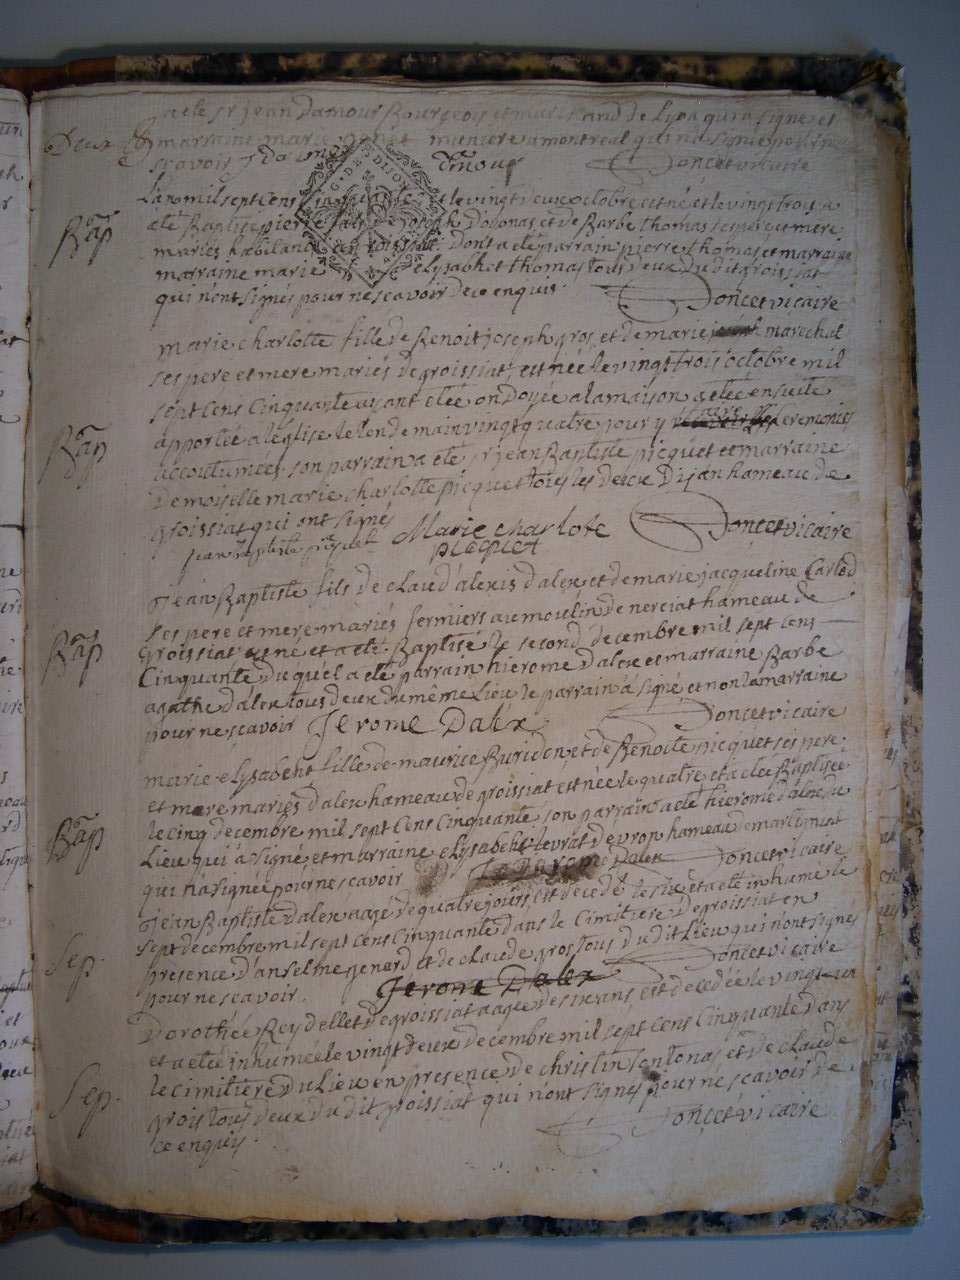 a été sr jean Damour Bourgeois et marchand de Lyon qui a signé et
Deux S
marraine marie meniere a montreal qui n'a signé
scavoir J damour Doncet vicaire
G. DE DIJON
Bap
Lan mil sept cens cinquante et le vingt deux octobre est né et le vingt trois a
été Baptisé pierre fils de joseph D'odonas, et de Barbe thomas ses pere et mere
mariés habitans a groissiat, Dont a été parrain pierre thomas, et marraine
marraine marie elysabhet thomas tous deux du dit groissiat
qui n'ont signés pour ne scavoir de ce enquis. Doncet vicaire
Bap
marie charlotte fille de Benoit joseph gros, et de marie marechal
ses pere et mere mariés de groissiat, est née le vingt trois octobre mil
sept cens cinquante ayant eté ondoyée a la maison a eté ensuite
apportée a l'église le lendemain vingt quatre jour y ceremonies
accoutumées, son parrain a été sr jean Baptiste picquet et marraine
Demoiselle marie charlotte picquet tous les deux Dijan hameau de
groissiat qui ont signés Marie charlote Doncet vicaire
jean baptiste picquet picquet
Bap
Jean Baptiste fils de claud'alexis dalex et de marie jacqueline Carlod
ses pere et mere mariés fermiers au moulin de nerciat hameau de
Groissiat est né et a été Baptisé le second decembre mil sept cens
Cinquante duquel a été parrain hierome dalex et marraine Barbe
agathe d'alex tous deux du même Lieu le parrain a signé et non la marraine
pour ne scavoir Jerome Dalex Doncet vicaire
Bap
marie elysabeht fille de maurice Buridon et de Benoite picquet ses pere
et mere mariés d'alex hameau de groissiat est née le quatre et a été Baptisée
le cinq decembre mil sept cens cinquante son parrain a été hierome dalex du
Lieu qui a signé et marraine elysabeht levrat devron hameau de martignat
qui n'a signée pour ne scavoir Jerome Dalex Doncet vicaire
Sep.
Jean Baptiste dalex agé de quatre jours, est decedé le six et a été inhumé le
sept decembre mil sept cens cinquante dans le Cimitiere de groissiat en
presence d'anselme jenard et de claude gros tous du dit Lieu qui n'ont signés
pour ne scavoir. Jerome Dalex Doncet vicaire
Sep.
Dorothée Reydellet de groissiat agée de six ans est decedée le vingt un
et a eté inhumée le vingt deux decembre mil sept cens cinquante dans
le cimitiere du Lieu en presence de christin sentonas et de claude
grois tous deux du dit groissiat qui n'ont signés pour ne scavoir de
ce enquis. Doncet vicaire